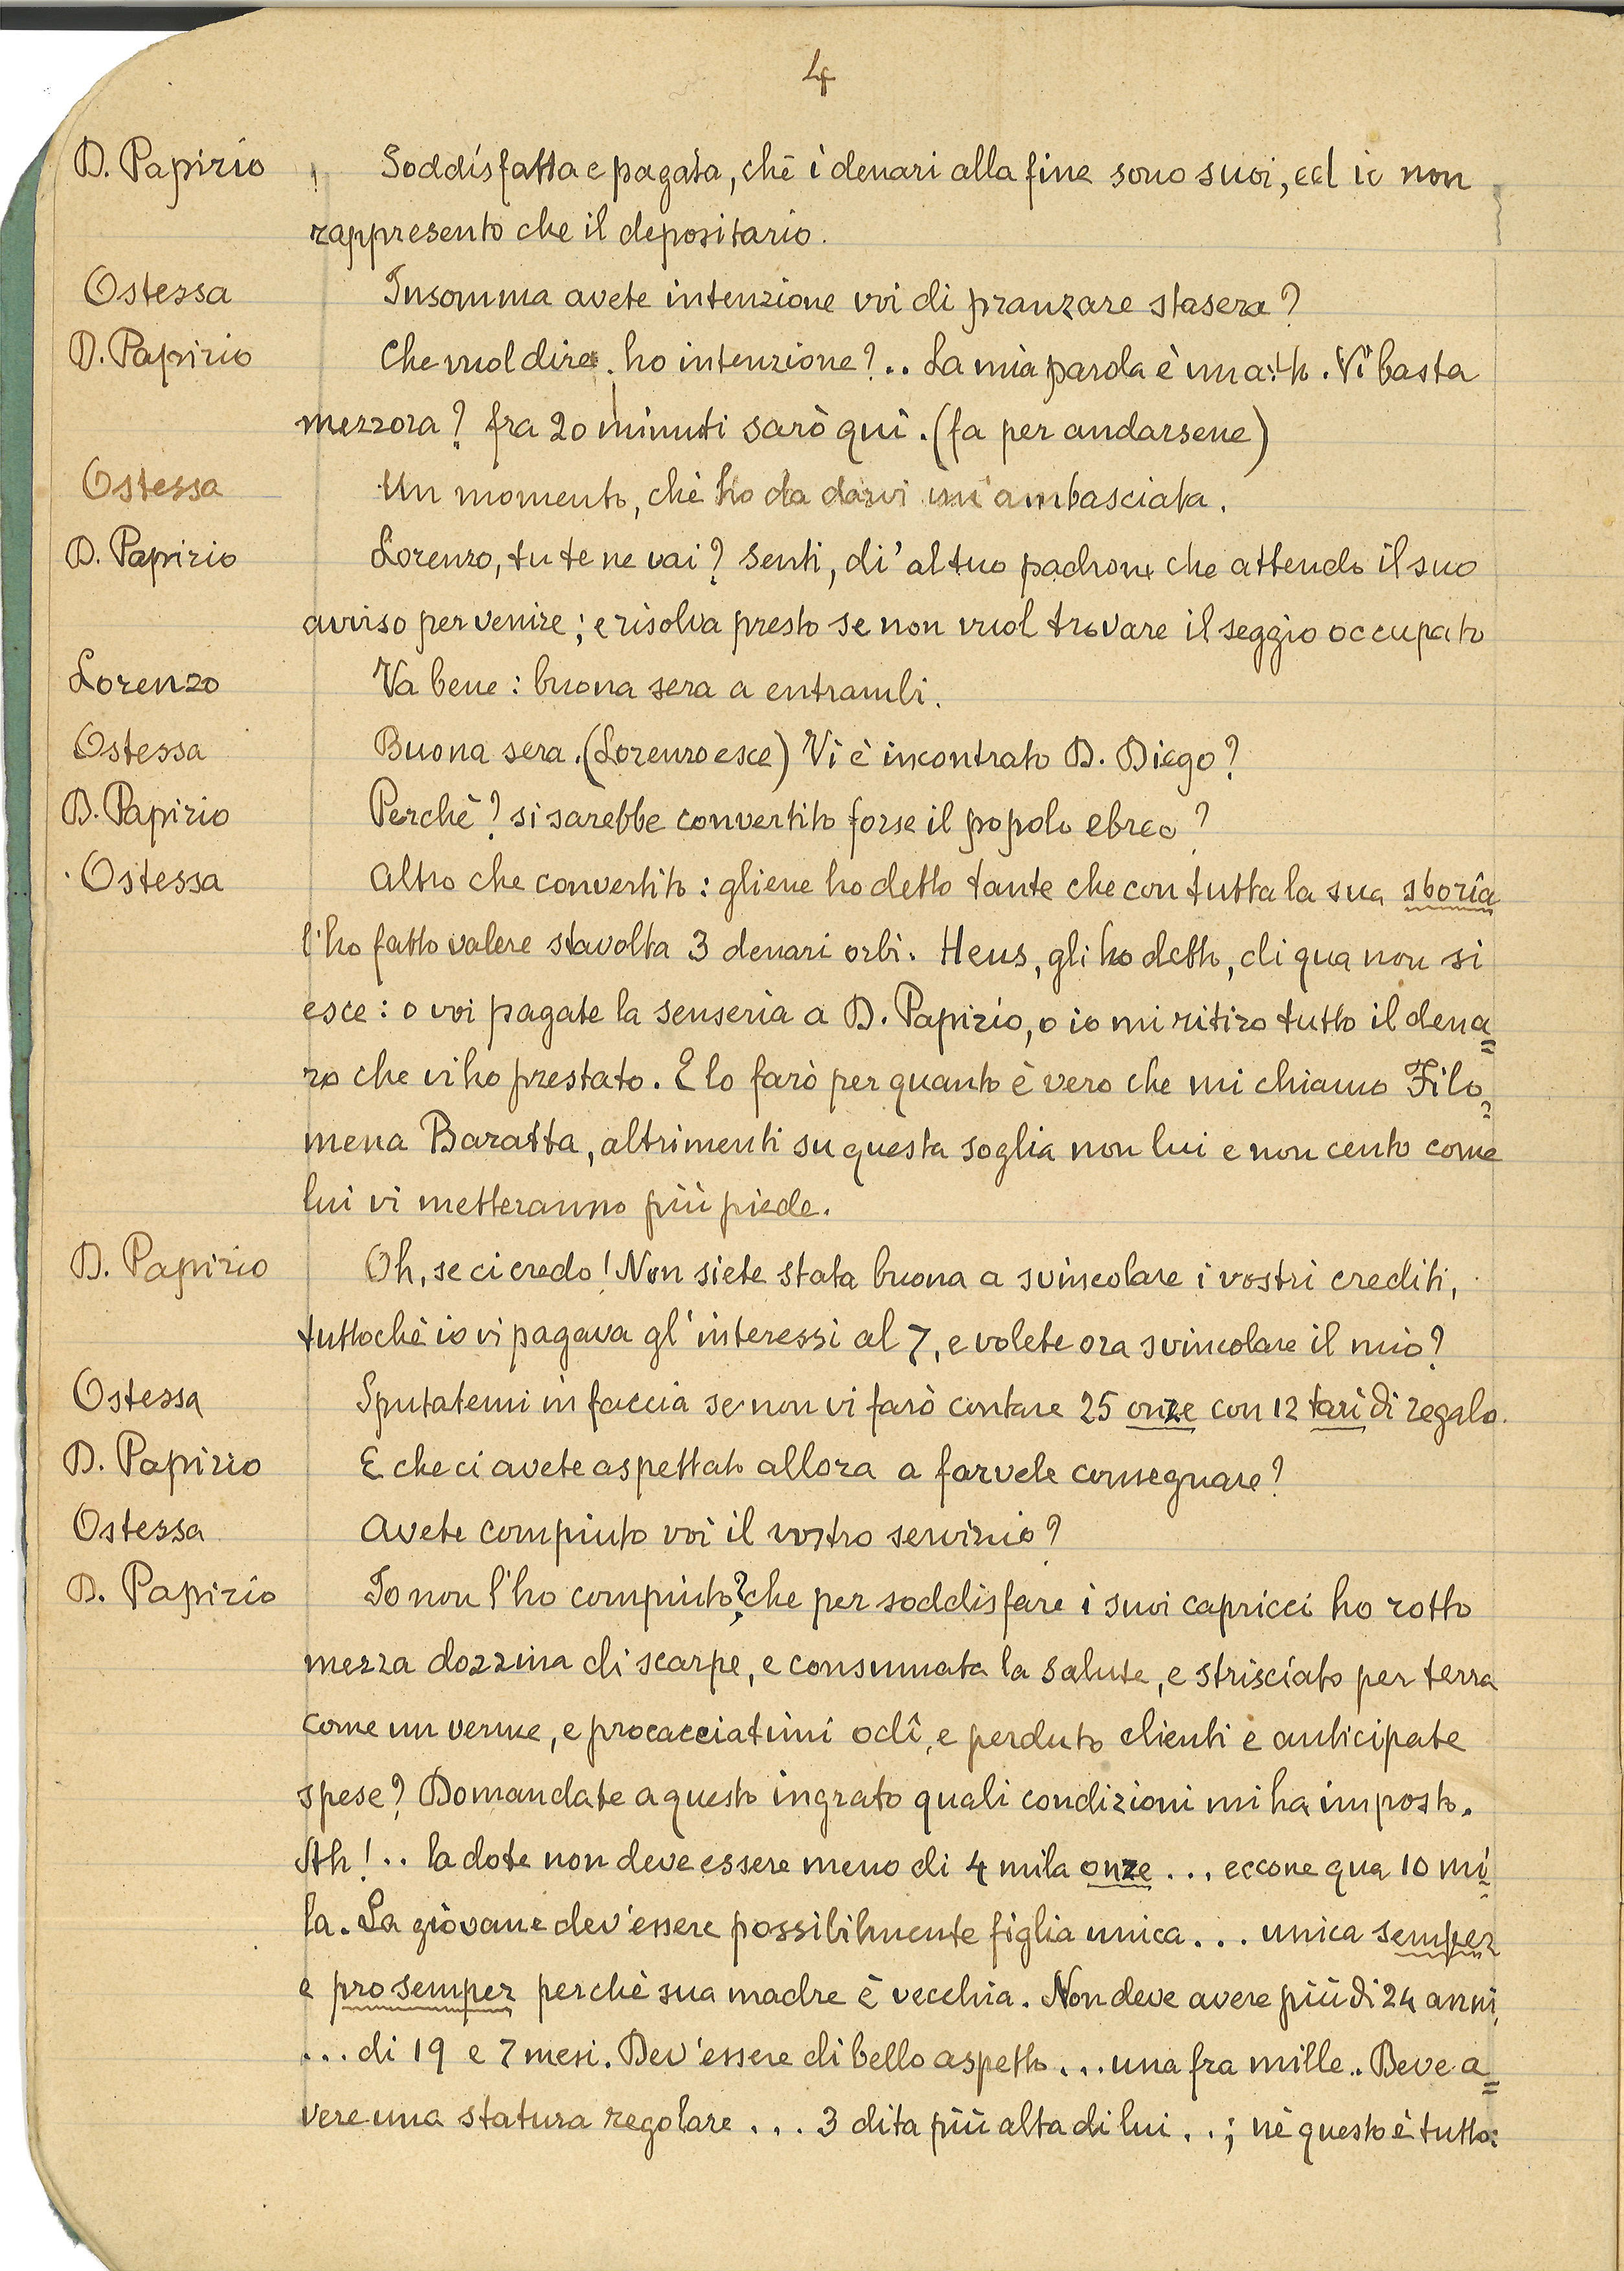 4
D. Papirio Soddisfatta e pagata, chè i denari alla fine sono suoi, ed io non
rappresento che il depositario.
Ostessa Insomma avete intenzione voi di pranzare stasera?
D. Papirio Che vuol dire ho intenzione?.. La mia parola è una: Vi basta
mezzora? fra 20 minuti sarò quì. (fa per andarsene)
Ostessa Un momento, chè ho da darvi un'ambasciata.
D. Papirio Lorenzo, tu te ne vai? Senti, di' al tuo padrone che attendo il suo
avviso per venire; e risolva presto se non vuol trovare il seggio occupato
Lorenzo Va bene: buona sera a entrambi.
Ostessa Buona sera. (Lorenzo esce) Vi è incontrato D. Diego?
D. Papirio Perchè? si sarebbe convertito forse il popolo ebreo?
Ostessa Altro che convertito: gliene ho detto tante che con tutta la sua sboria
l'ho fatto valere stavolta 3 denari orbi. Heus, gli ho detto, di qua non si
esce: o voi pagate la senseria a D. Papirio, o io mi ritiro tutto il dena=
ro che vi ho prestato. E lo farò per quanto è vero che mi chiamo Filo=
mena Baratta, altrimenti su questa soglia non lui e non cento come
lui vi metteranno più piede.
D. Papirio Oh, se ci credo! Non siete stata buona a svincolare i vostri crediti,
tuttochè io vi pagava gl'interessi al 7, e volete ora svincolare il mio?
Ostessa Sputatemi in faccia se non vi farò contare 25 onze con 12 tarì di regalo.
D. Papirio E che ci avete aspettato allora a farvele consegnare?
Ostessa Avete compiuto voi il vostro servizio?
D. Papirio Io non l'ho compiuto? che per soddisfare i suoi capricci ho rotto
mezza dozzina di scarpe, e consumata la salute, e strisciato per terra
come un verme, e procacciatimi odî, e perduto clienti e anticipate
spese? Domandate a questo ingrato quali condizioni mi ha imposto.
Ah!.. la dote non deve essere meno di 4 mila onze... eccone qua 10 mi=
la. La giovane dev'essere possibilmente figlia unica... unica semper
e pro semper perchè sua madre è vecchia. Non deve avere più di 24 anni
... di 19 e 7 mesi. Dev'essere di bello aspetto... una fra mille.. Deve a=
vere una statura regolare... 3 dita più alta di lui..; nè questo è tutto: